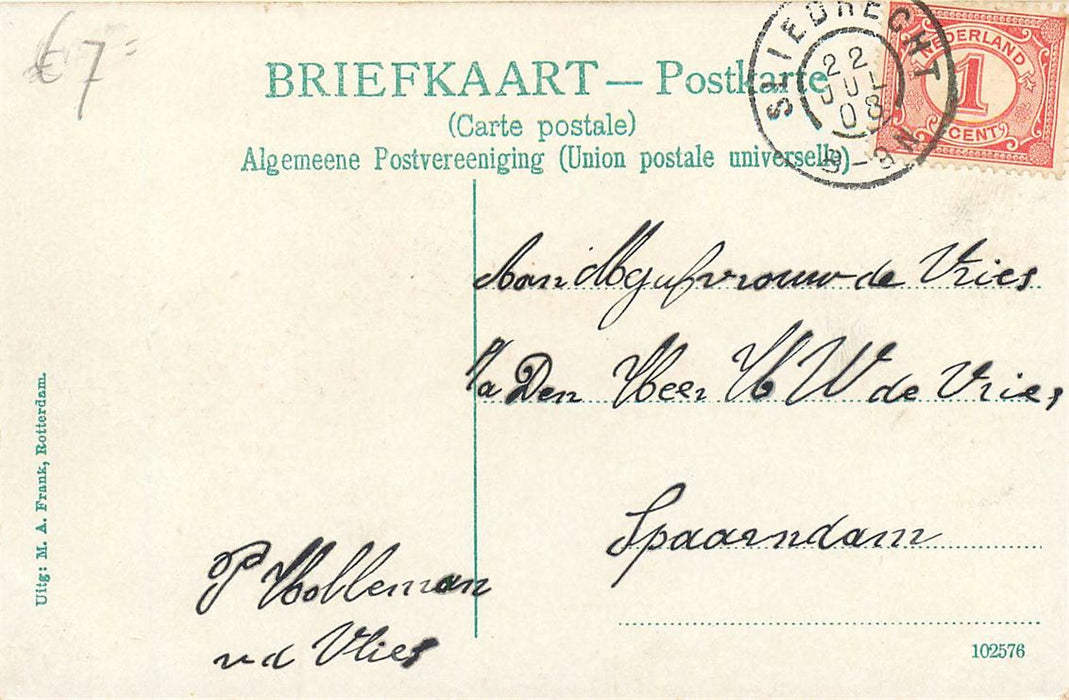 € 7=
BRIEFKAART — Postkarte
(Carte postale)
Algemeene Postvereeniging (Union postale universelle)
SLIEDRECHT
22
JUL
08
8-9 N
NEDERLAND
1
CENT
Aan Mejufvrouw de Vries
p/a Den Heer H W de Vries
Spaarndam
P Holleman
v d Vlies
Uitg: M. A. Frank, Rotterdam.
102576